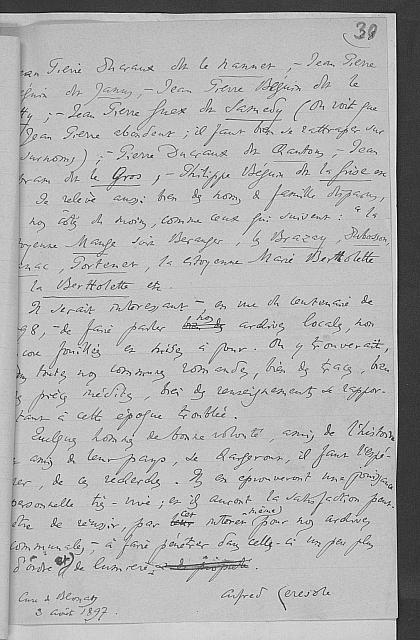 39
Jean Pierre Ducraux dit le ; – Jean Pierre
Béguin dit Janus, – Jean Pierre Béguin dit le
; – Jean Pierre Guex dit Samedy (On voit que
Jean Pierre abondent ; il faut bien se rattraper sur
surnoms) ; – Pierre Ducraux dit Quantous, – Jean
dit le Gros, – Philippe Béguin dit la frise en
Je relève aussi bien des noms de famille disparus,
nos côtés du moins, comme ceux qui suivent : à la
citoyenne Beranger, Brazay, Dubosson,
, Portenet, la citoyenne Marie Bertholette
la Bertholette etc.
Il serait intéressant – en vue du centenaire de
98, – de faire parler nos archives locales, non
fouillées et mises à jour. On y trouverait,
toutes nos communes romandes, bien des traces, bien
préc inédites, bien des renseignements se rappor-
tant à cette époque troublée.
Quelques hommes de bonne volonté, amis de l'histoire
amis de leur pays, se chargeront, il faut l'espé-
rer, de ces recherches. Ils en éprouveront une jouissance
personnelle très-vive ; et ils auront la satisfaction peut-
être de réussir, par cet intérêt même pour nos archives
communales, – à faire pénétrer dans celles-ci un peu plus
d'ordre et de lumière.
Cure de Blonay
3 août 1897.
Alfred Ceresole